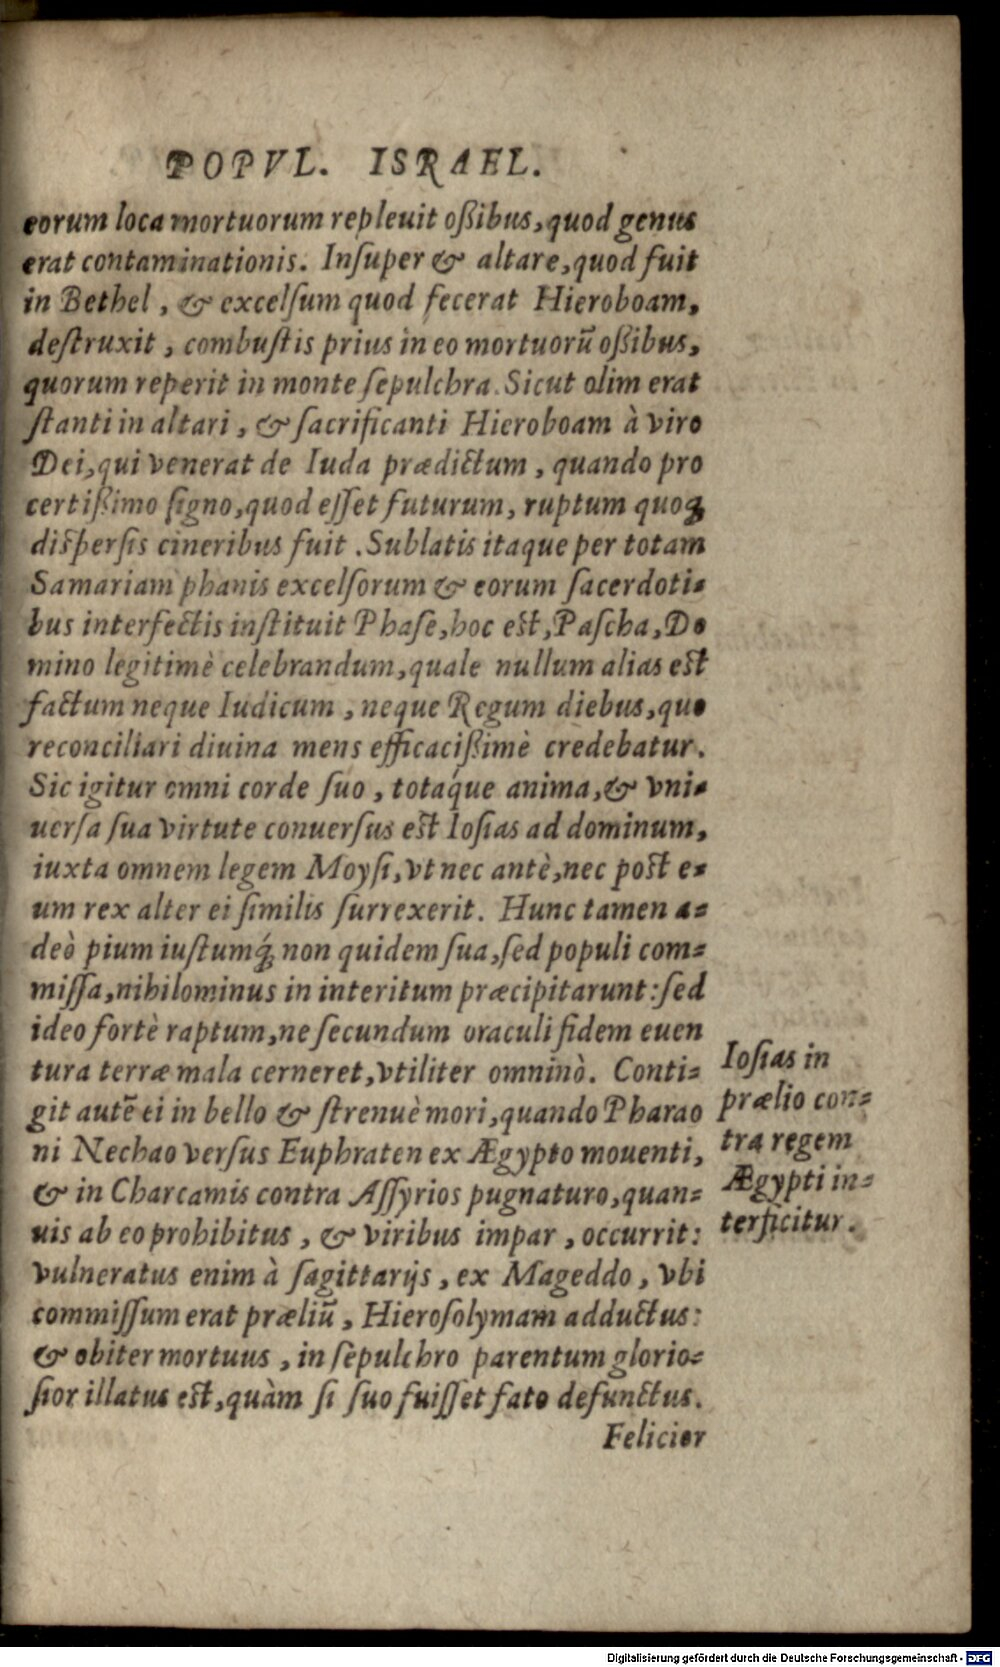 POPVL. ISRAEL.
eorum loca mortuorum repleuit oßibus, quod genus
erat contaminationis. Inſuper & altare, quod fuit
in Bethel, & excelſum quod fecerat Hieroboam,
deſtruxit, combuſtis prius in eo mortuorū oßibus,
quorum reperit in monte ſepulchra. Sicut olim erat
ſtanti in altari, & ſacrificanti Hieroboam à viro
Dei, qui venerat de Iuda prædictum, quando pro
certißimo ſigno, quod eſſet futurum, ruptum quoq;
diſperſis cineribus fuit. Sublatis itaque per totam
Samariam phanis excelſorum & eorum ſacerdoti-
bus interfectis inſtituit Phaſe, hoc eſt, Paſcha, Do
mino legitimè celebrandum, quale nullum alias eſt
factum neque Iudicum, neque Regum diebus, quo
reconciliari diuina mens efficacißimè credebatur.
Sic igitur omni corde ſuo, totáque anima, & vni-
uerſa ſua virtute conuerſus eſt Ioſias ad dominum,
iuxta omnem legem Moyſi, vt nec antè, nec poſt e-
um rex alter ei ſimilis ſurrexerit. Hunc tamen a-
deò pium iuſtumq́; non quidem ſua, ſed populi com-
miſſa, nihilominus in interitum præcipitarunt: ſed
ideo fortè raptum, ne ſecundum oraculi fidem euen
tura terræ mala cerneret, vtiliter omninò. Conti-
git autē ei in bello & ſtrenuè mori, quando Pharao
ni Nechao verſus Euphraten ex Ægypto mouenti,
& in Charcamis contra Aſſyrios pugnaturo, quan-
uis ab eo prohibitus, & viribus impar, occurrit:
vulneratus enim à ſagittarijs, ex Mageddo, vbi
commiſſum erat præliū, Hieroſolymam adductus:
& obiter mortuus, in ſepulchro parentum glorio-
ſior illatus eſt, quàm ſi ſuo fuiſſet fato defunctus.
Felicior
Ioſias in
prælio con-
tra regem
Ægypti in-
terficitur.
Digitalisierung gefördert durch die Deutsche Forschungsgemeinschaft - DFG